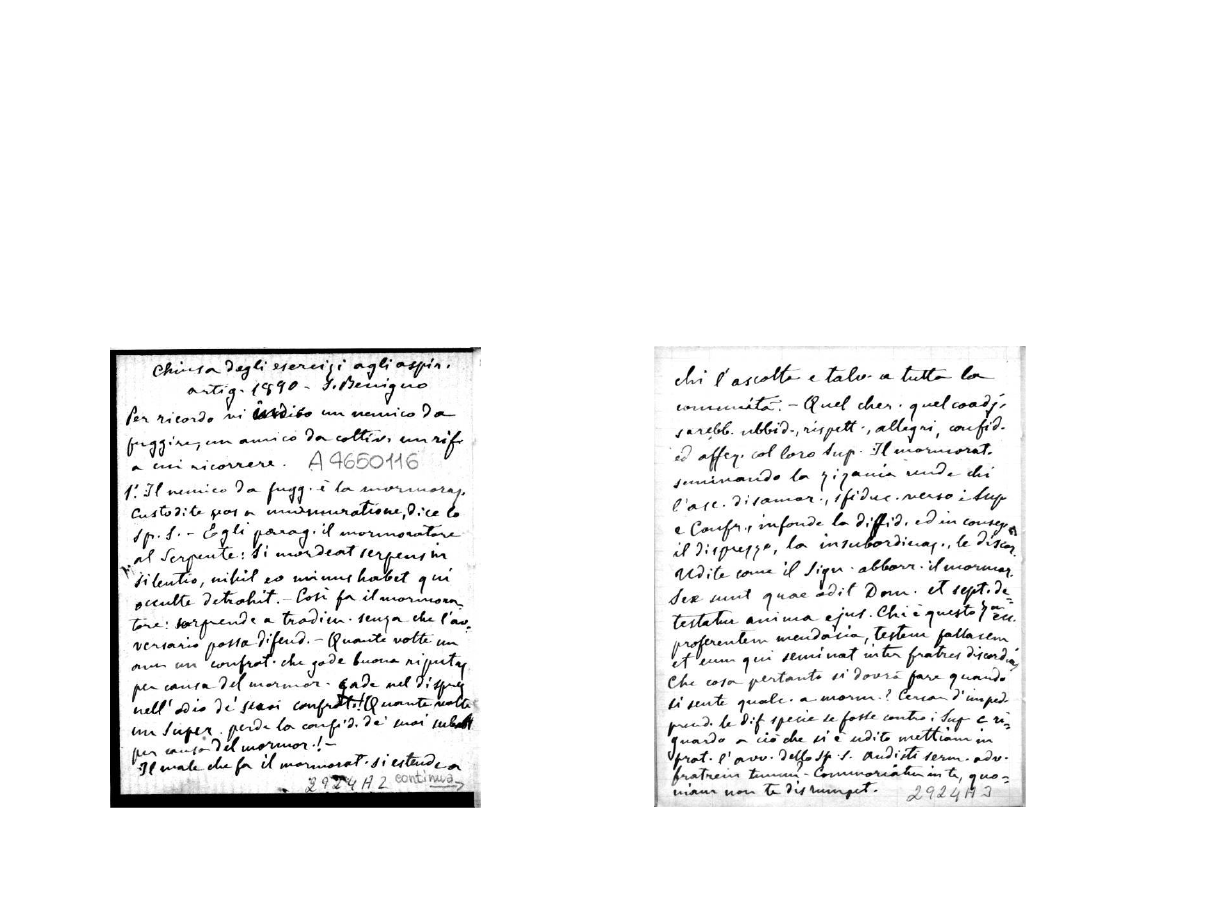 Chiusa degli esercizi agli aspir.
artig. 1890 - S. Benigno
Per ricordo vi indico un nemico da
fuggire, un amico da coltiv. un rif
a cui ricorrere. A4650116
1°. Il nemico da fugg. è la mormoraz.
Custodite vos a murmuratione, dice lo
Sp. S. - Egli parag. il mormoratore
al Serpente: Si mordeat serpens in
silentio, nihil eo minus habet qui
occulte detrahit. - Così fa il mormora-
tore: sorprende a tradim. senza che l'av-
versario possa difend. - Quante volte un
un confrat. che gode buona riputaz
per causa del mormor. cade nel disprez
nell'odio de' suoi confrat.! Quante volte
un Super. perde la confid. de' suoi subalt
per causa del mormor.! -
Il male che fa il mormorat. si estende a
2924A2 continua
chi l'ascolta e talv. a tutta la
comunità. - Quel cher. quel coadj.
sarebb. ubbid., rispett., allegri, confid.
ed affez. col loro Sup. Il mormorat.
seminando la zizania rende chi
l'asc. disamor., sfiduc. verso i Sup
e Confr., infonde la diffid. ed in conseg
il disprezzo, la insubordinaz., le discor.
Udite come il Sign. abborr. il mormor.
Sex sunt quae odit Dom. et sept. de-
testatur anima ejus. Chi è questo
proferentem mendacia, testem fallacem
et eum qui seminat inter fratres discordia
Che cosa pertanto si dovrà fare quando
si sente qualc. a morm.? Cercar d'imped
prend. le dif specie se fosse contro i Sup e ri-
guardo a ciò che si è udito mettiam in
prat. l'avv. dello Sp. S. Audisti verm. adv.
fratrem tuum. Commoriatur in te, quo-
niam non te disrumpet.
2924A3